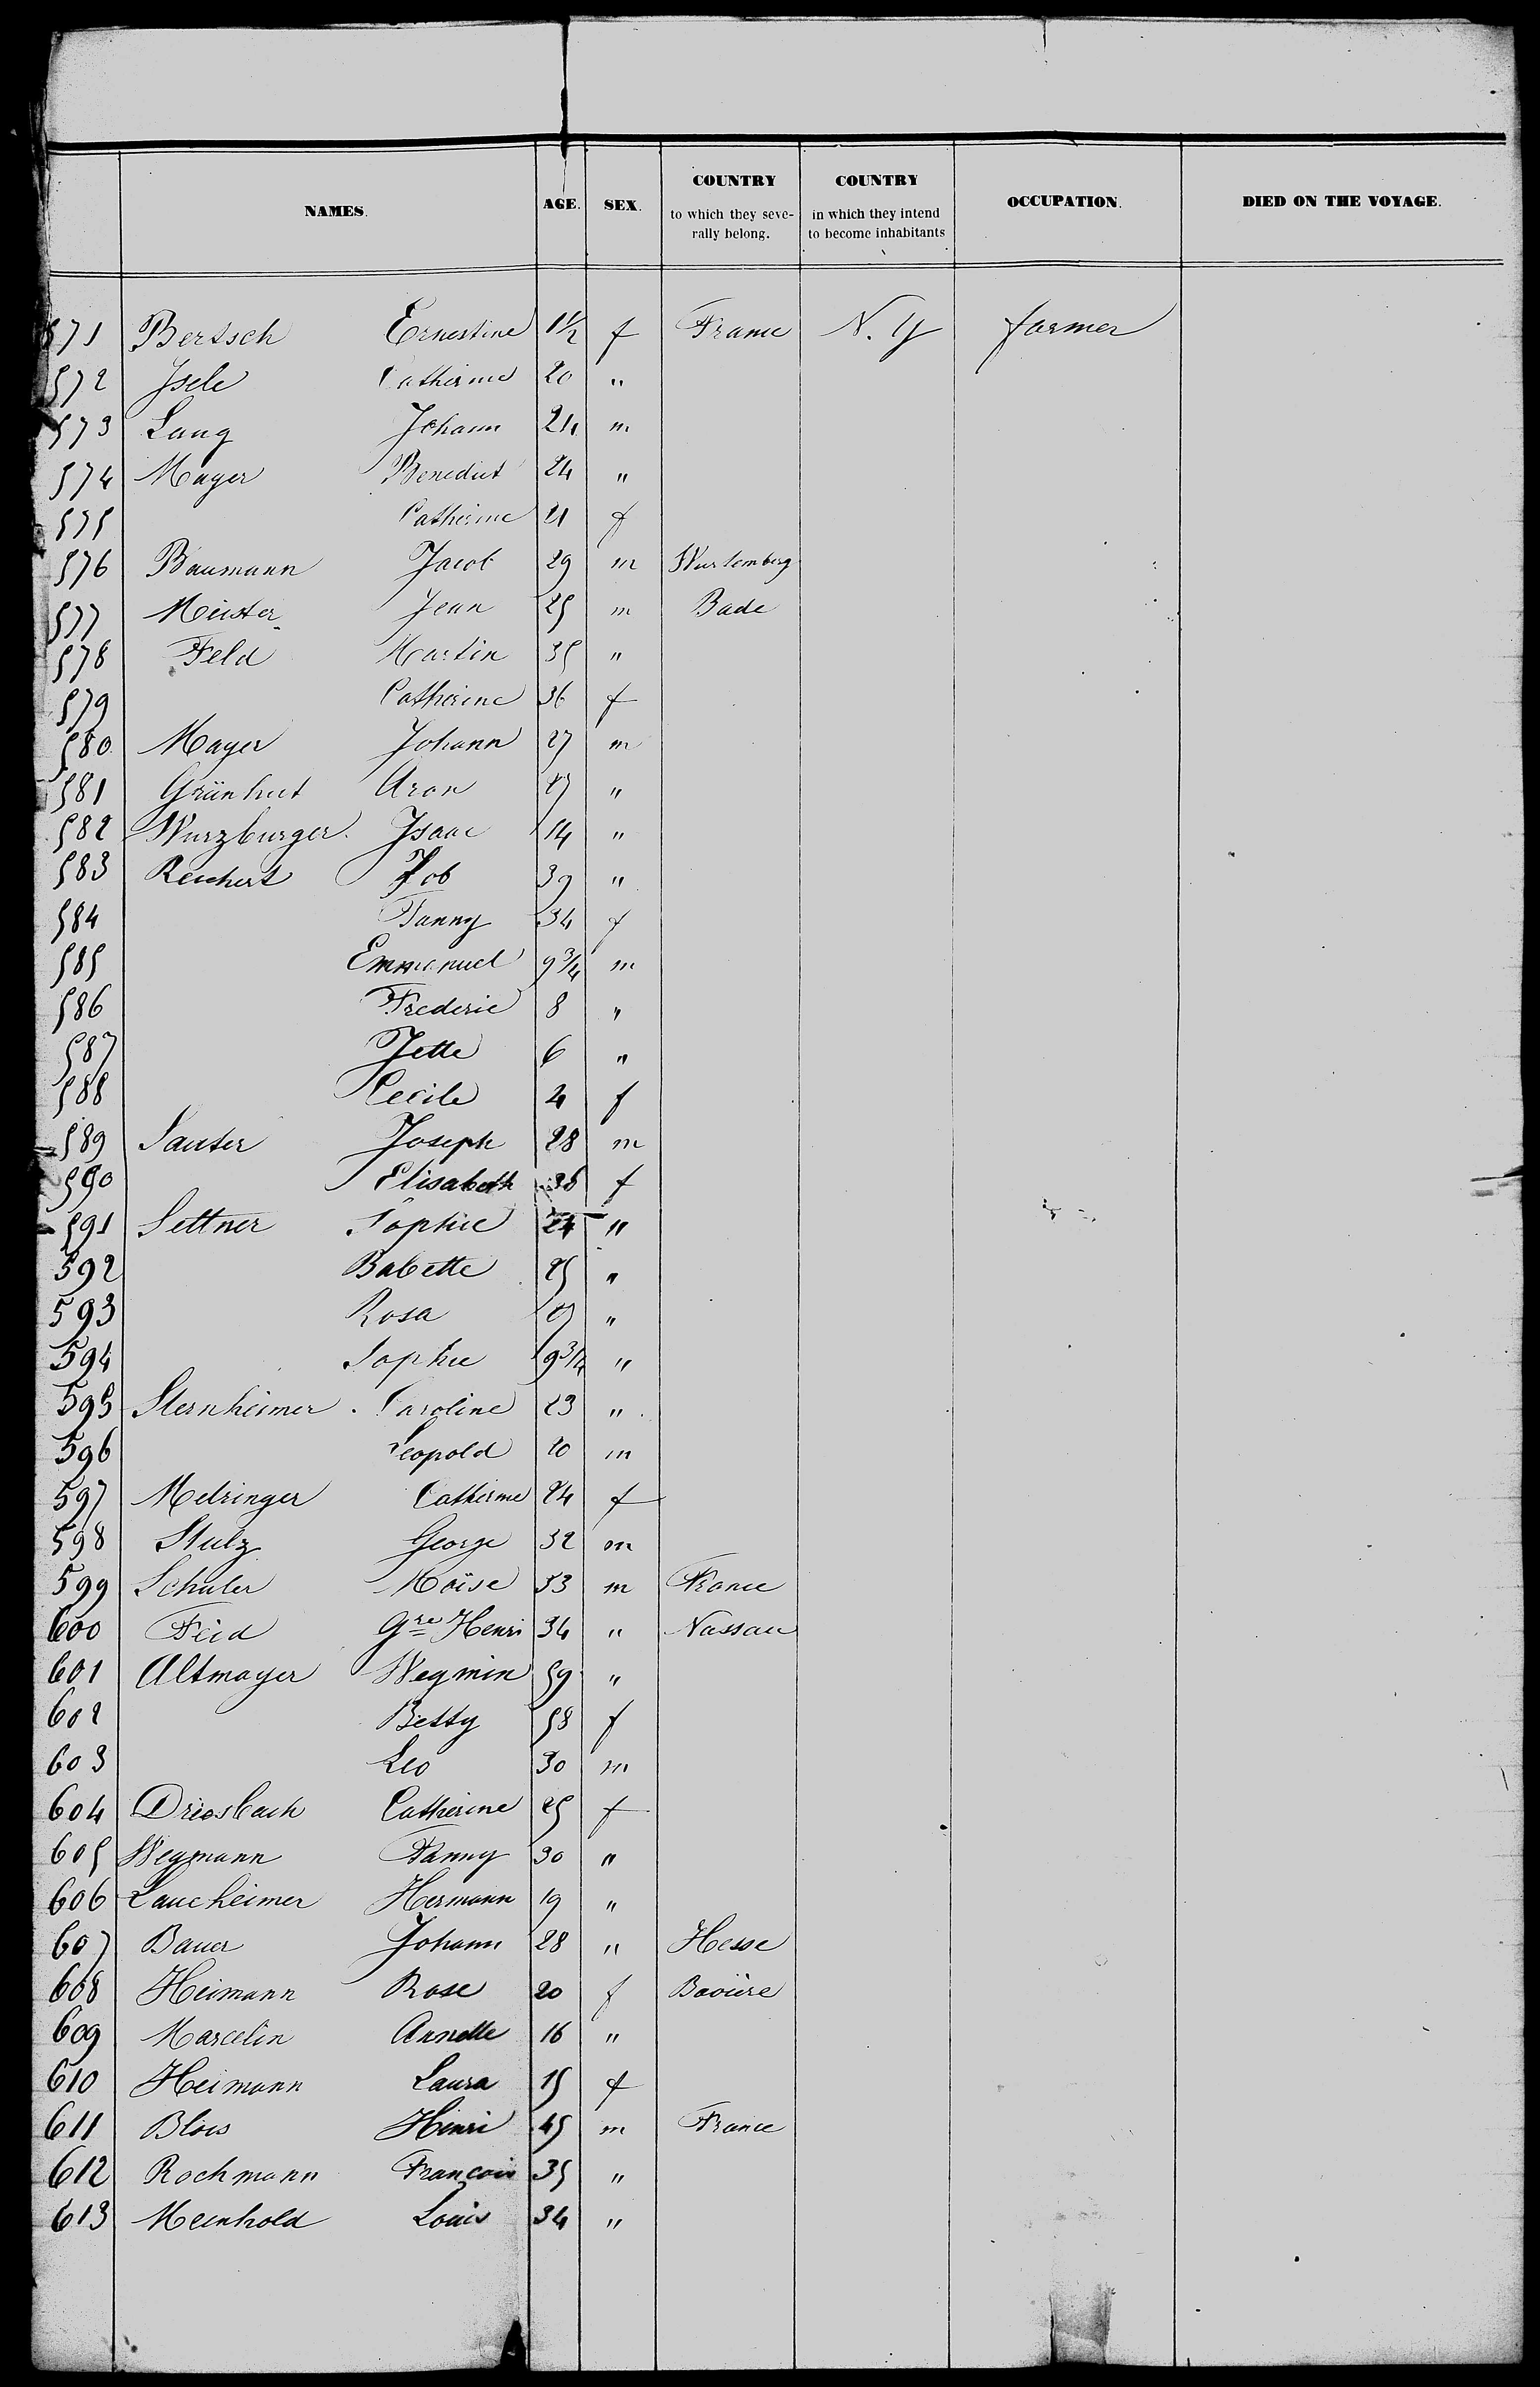 NAMES. AGE. SEX. COUNTRY to which they severally belong. COUNTRY in which they intend to become inhabitants OCCUPATION. DIED ON THE VOYAGE.
571 Bertsch Ernestine 1 1/2 f France N. Y farmer
572 Jsele Catherine 20 "
573 Lang Johann 24 m
574 Mayer Benedict 24 "
575 Catherine 21 f
576 Baumann Jacob 29 m Wurtemberg
577 Meister Jean 25 m Bade
578 Feld Martin 35 "
579 Catherine 36 f
580 Mayer Johann 27 m
581 Grünhut Aron "
582 Wurzburger Jsaac 14 "
583 Reichert Job 39 "
584 Fanny 34 f
585 Emmanuel 9 3/4 m
586 Frederic 8 "
587 Jette 6 "
588 Cecile 4 f
589 Sauter Joseph 28 m
590 Elisabeth f
591 Settner Sophie 24 "
592 Babette 25 "
593 Rosa "
594 Sophie 9 3/4 "
595 Sternheimer Caroline 23 "
596 Leopold 20 m
597 Melringer Catherine 24 f
598 Stulz George 32 m
599 Schuler Moïse 33 m France
600 Feid Gre Henri 34 " Nassau
601 Altmayer Wegmin 59 "
602 Betty 58 f
603 Leo 30 m
604 Driesbach Catherine 25 f
605 Wegmann Fanny 30 "
606 Laucheimer Hermann 19 "
607 Bauer Johann 28 " Hesse
608 Heimann Rose 20 f Bavière
609 Marcelin Annette 16 "
610 Heimann Laura 15 f
611 Blois Henri 45 m France
612 Rochmann Francois 35 "
613 Meinhold Louis 34 "